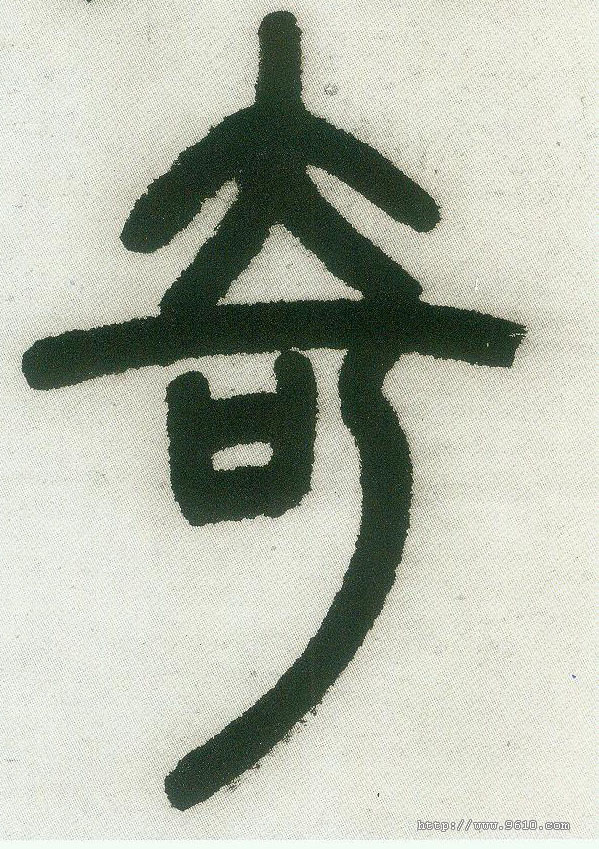 奇
http://www.9610.com